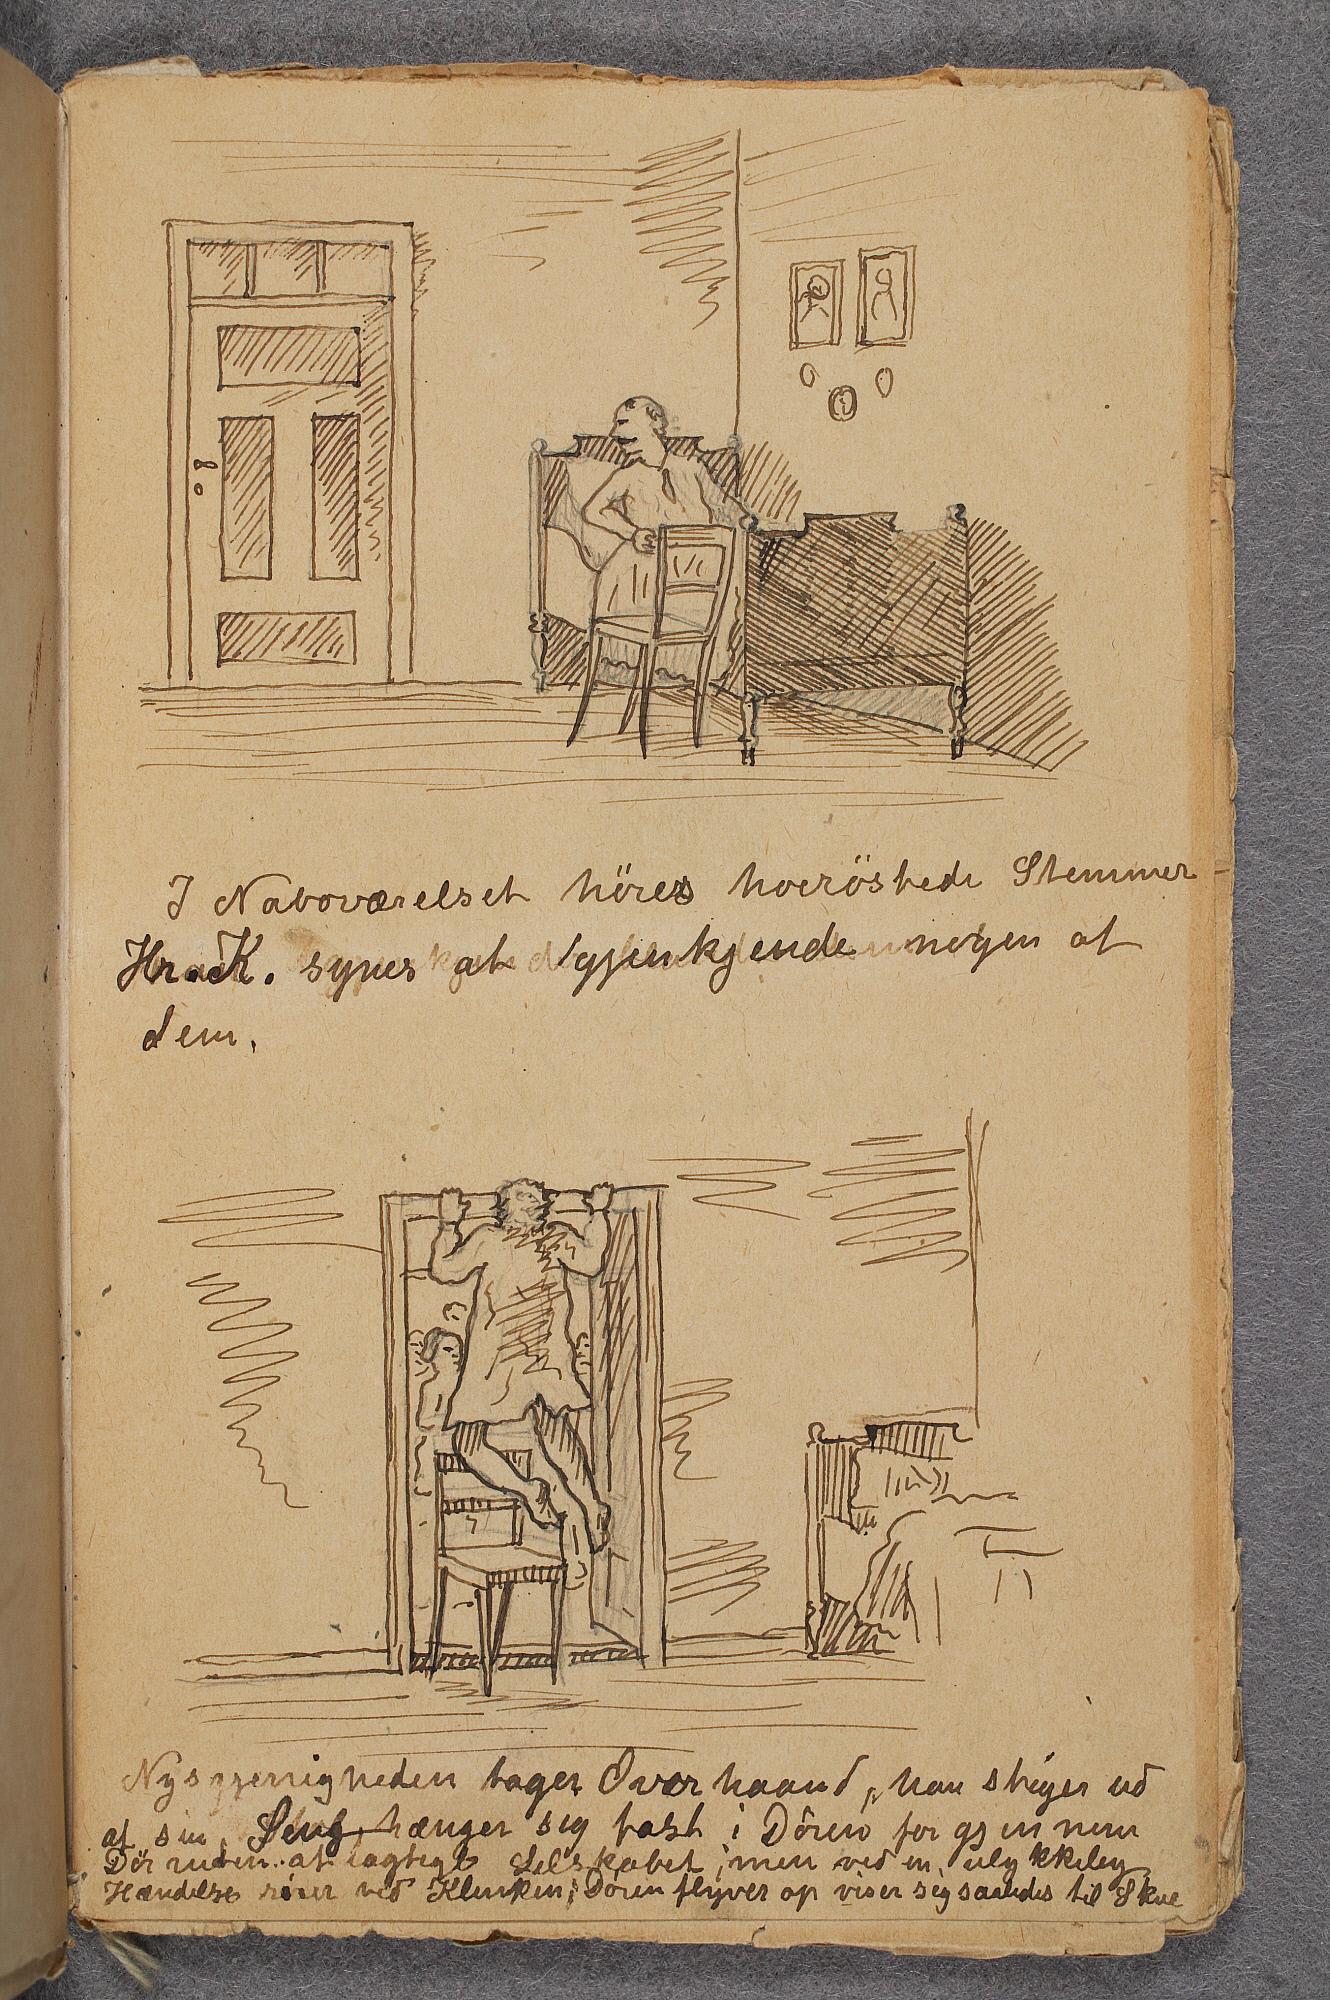 I Naboværelset höres hoiröstede Stemmer -
Hr. K. synes at gjenkjende nogen af
dem.
Nysgjerrigheden tager Overhaand, han stiger ud
af sin Seng, hænger sig fast i Dören for gjennem
Dörruden at iagtage Selskabet, men ved en ulykkelig
Hændelse rörer ved Klinken, Dören flyver op viser sig saaledes til Skue